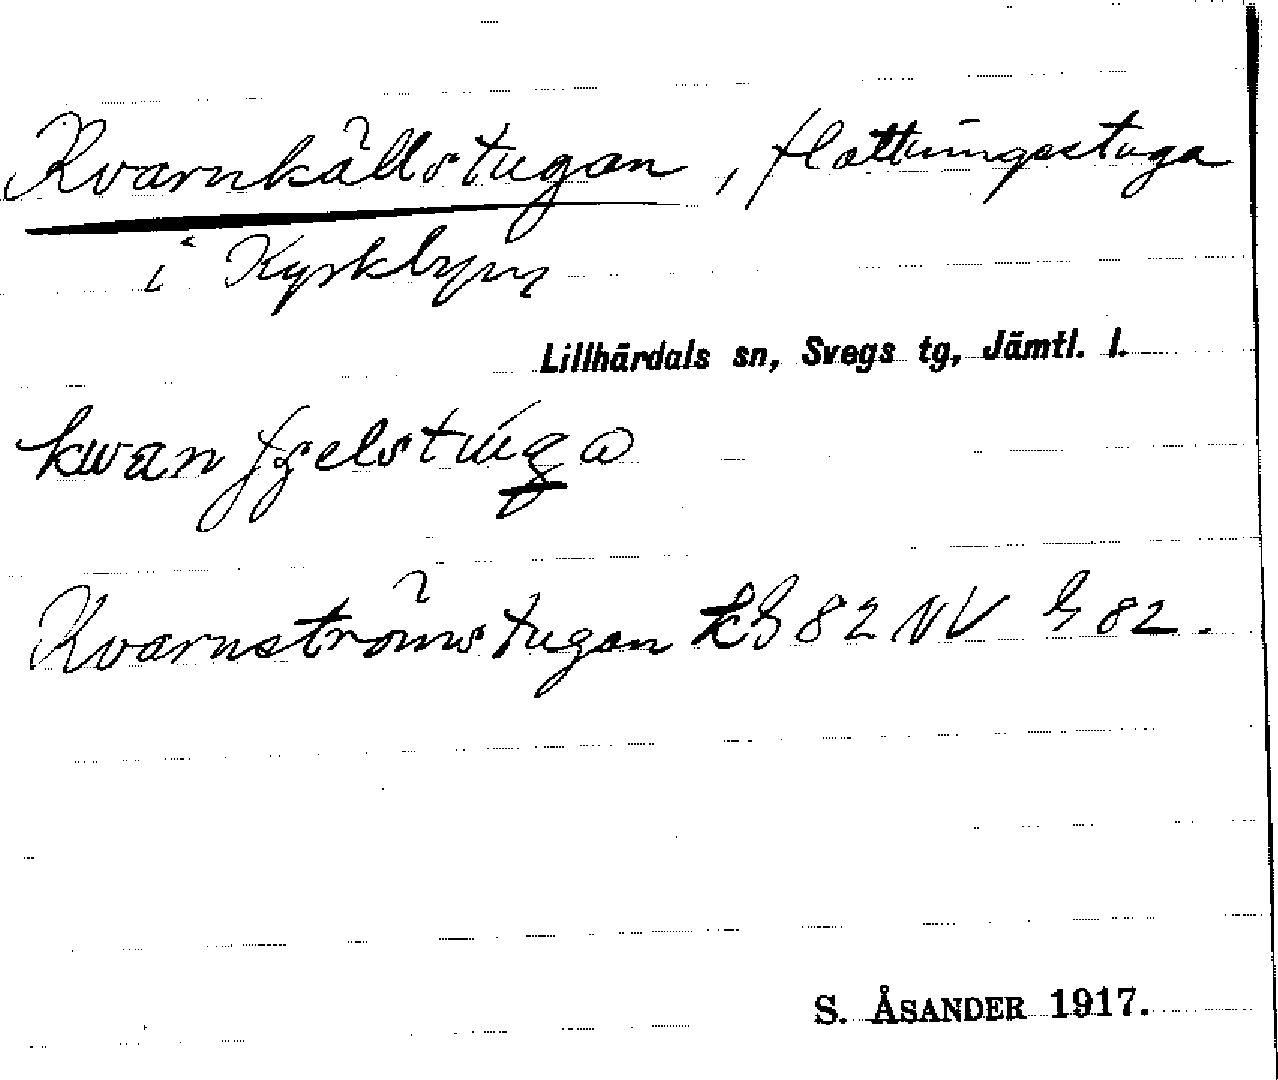 Kvarnkällstugan, flottningsstuga
i Kyrkbyn
Lillhärdals sn, Svegs tg, Jämtl. l.
Kvarnströmstugan 82 NV 82.
S. ÅSANDER 1917.